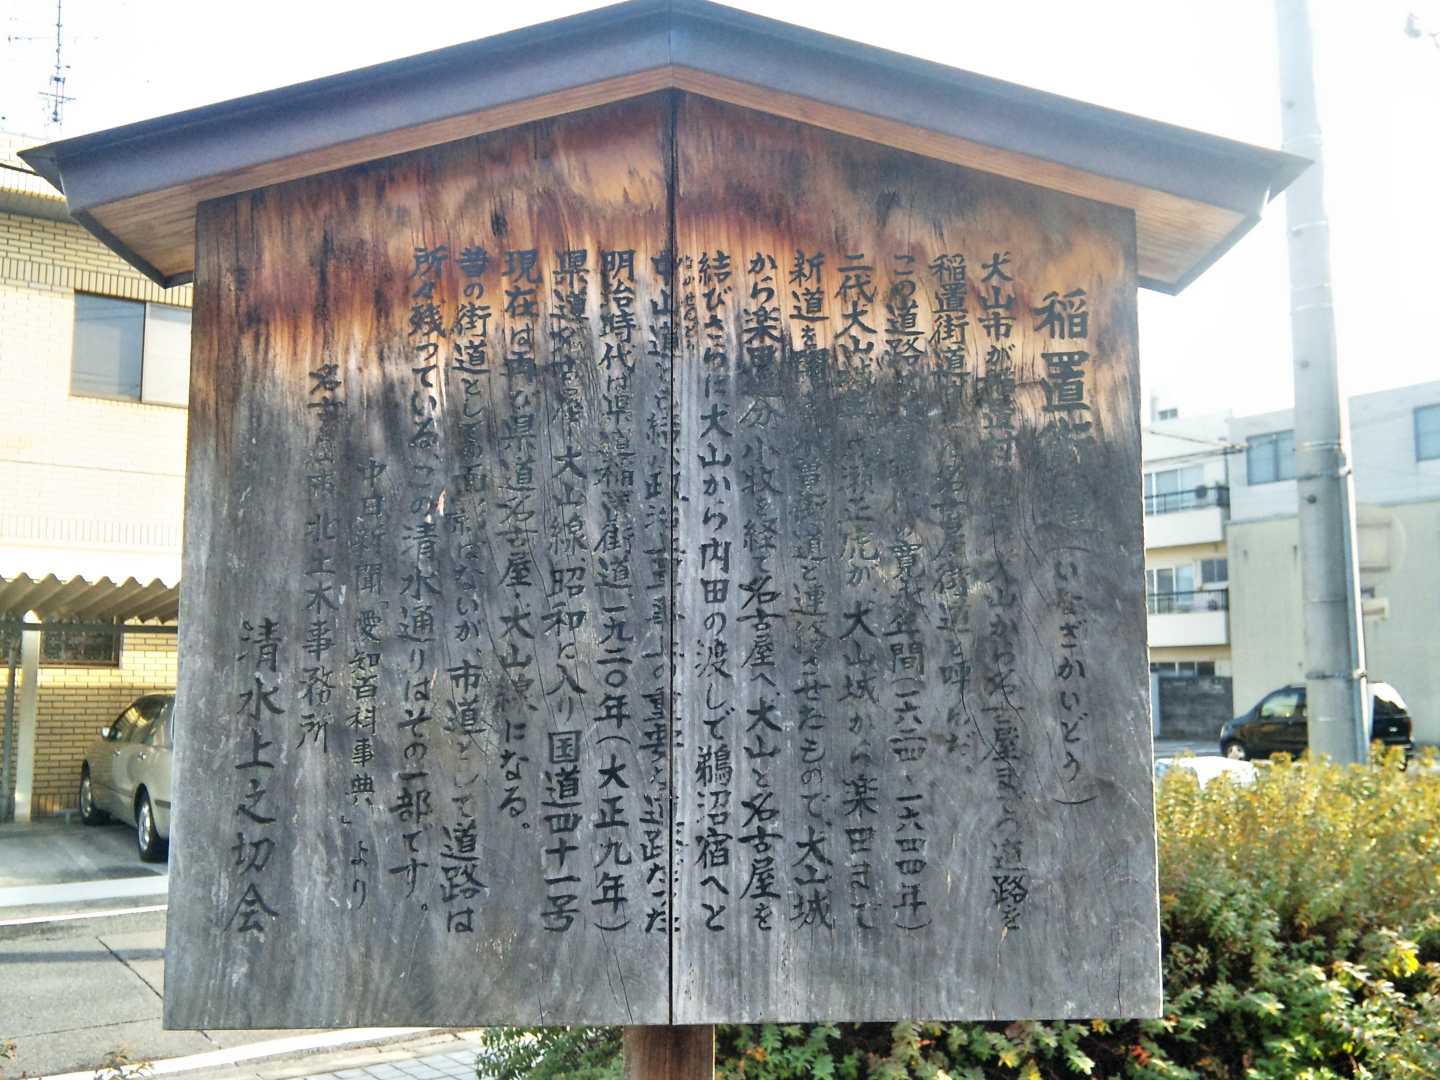 稲置街道(いなぎかいどう)
犬山市が稲置村 犬山から名古屋までの道路を
稲置街道 名古屋街道と呼んだ。
この道路は 寛永年間(一六二四〜一六四四年)
二代犬山城主 成瀬正虎が、犬山城から楽田まで
新道を開き木曽街道と連絡させたもので、犬山城
から楽田追分小牧を経て名古屋へ、犬山と名古屋を
結びさらに犬山から内田の渡しで鵜沼宿へと
なかせんどう
中山道とも結び政治 軍事上の重要な道路だった
明治時代は県道稲置街道、一九二〇年(大正九年)
県道名古屋−犬山線、昭和に入り国道四十一号
現在は再び県道名古屋・犬山線になる。
昔の街道としての面影はないが、市道として道路は
所々残っている。この清水通りはその一部です。
中日新聞「愛知百科事典」より
名古屋市北土木事務所
清水上之切会